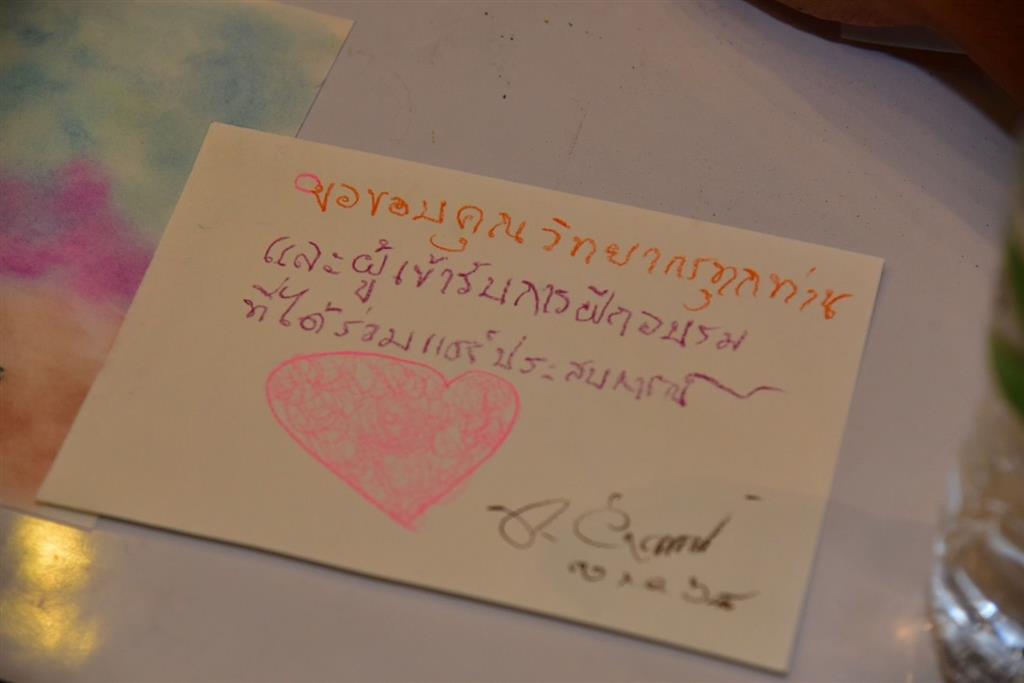 ขอขอบคุณ วิทยากรทุกท่าน
และผู้เข้ารับการฝึกอบรม
ที่ได้ร่วมแชร์ประสบการณ์